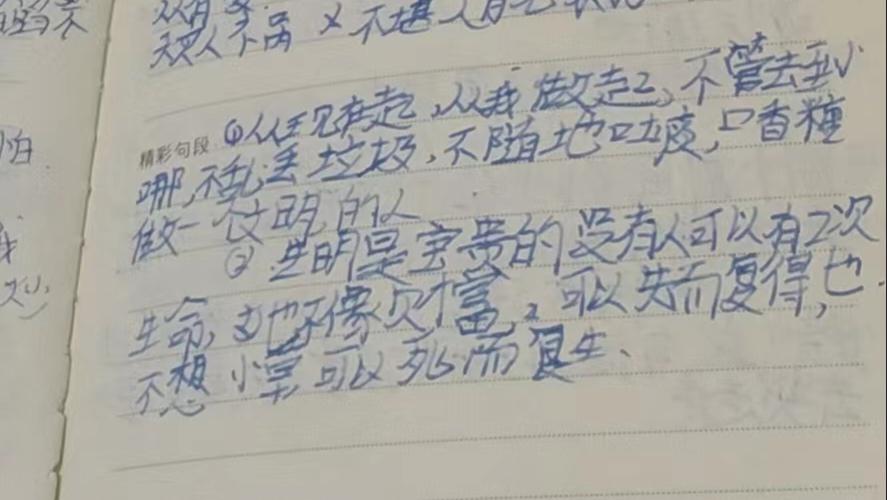 不堪人
精彩句段 ①从现在起,从我做起,不管去到
哪,不乱丢垃圾,不随地吐皮,口香糖
做一个文明的人
②生明是宝贵的没有人可以有2次
生命,也不像财富,可以失而复得,也
不想小草,可以死而复生、